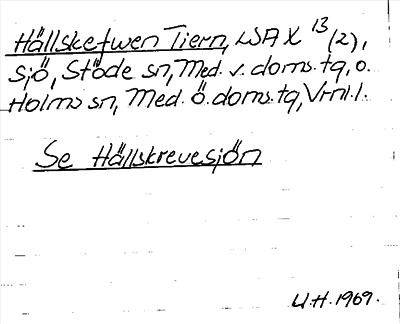 Hällskefwen Tiern, LSA X 13 (2),
sjö, Stöde sn, Med. v. doms. tg, o.
Holms sn, Med. ö. doms. tg, Vrnl. l.
Se Hällskrevesjön
U.H. 1969.